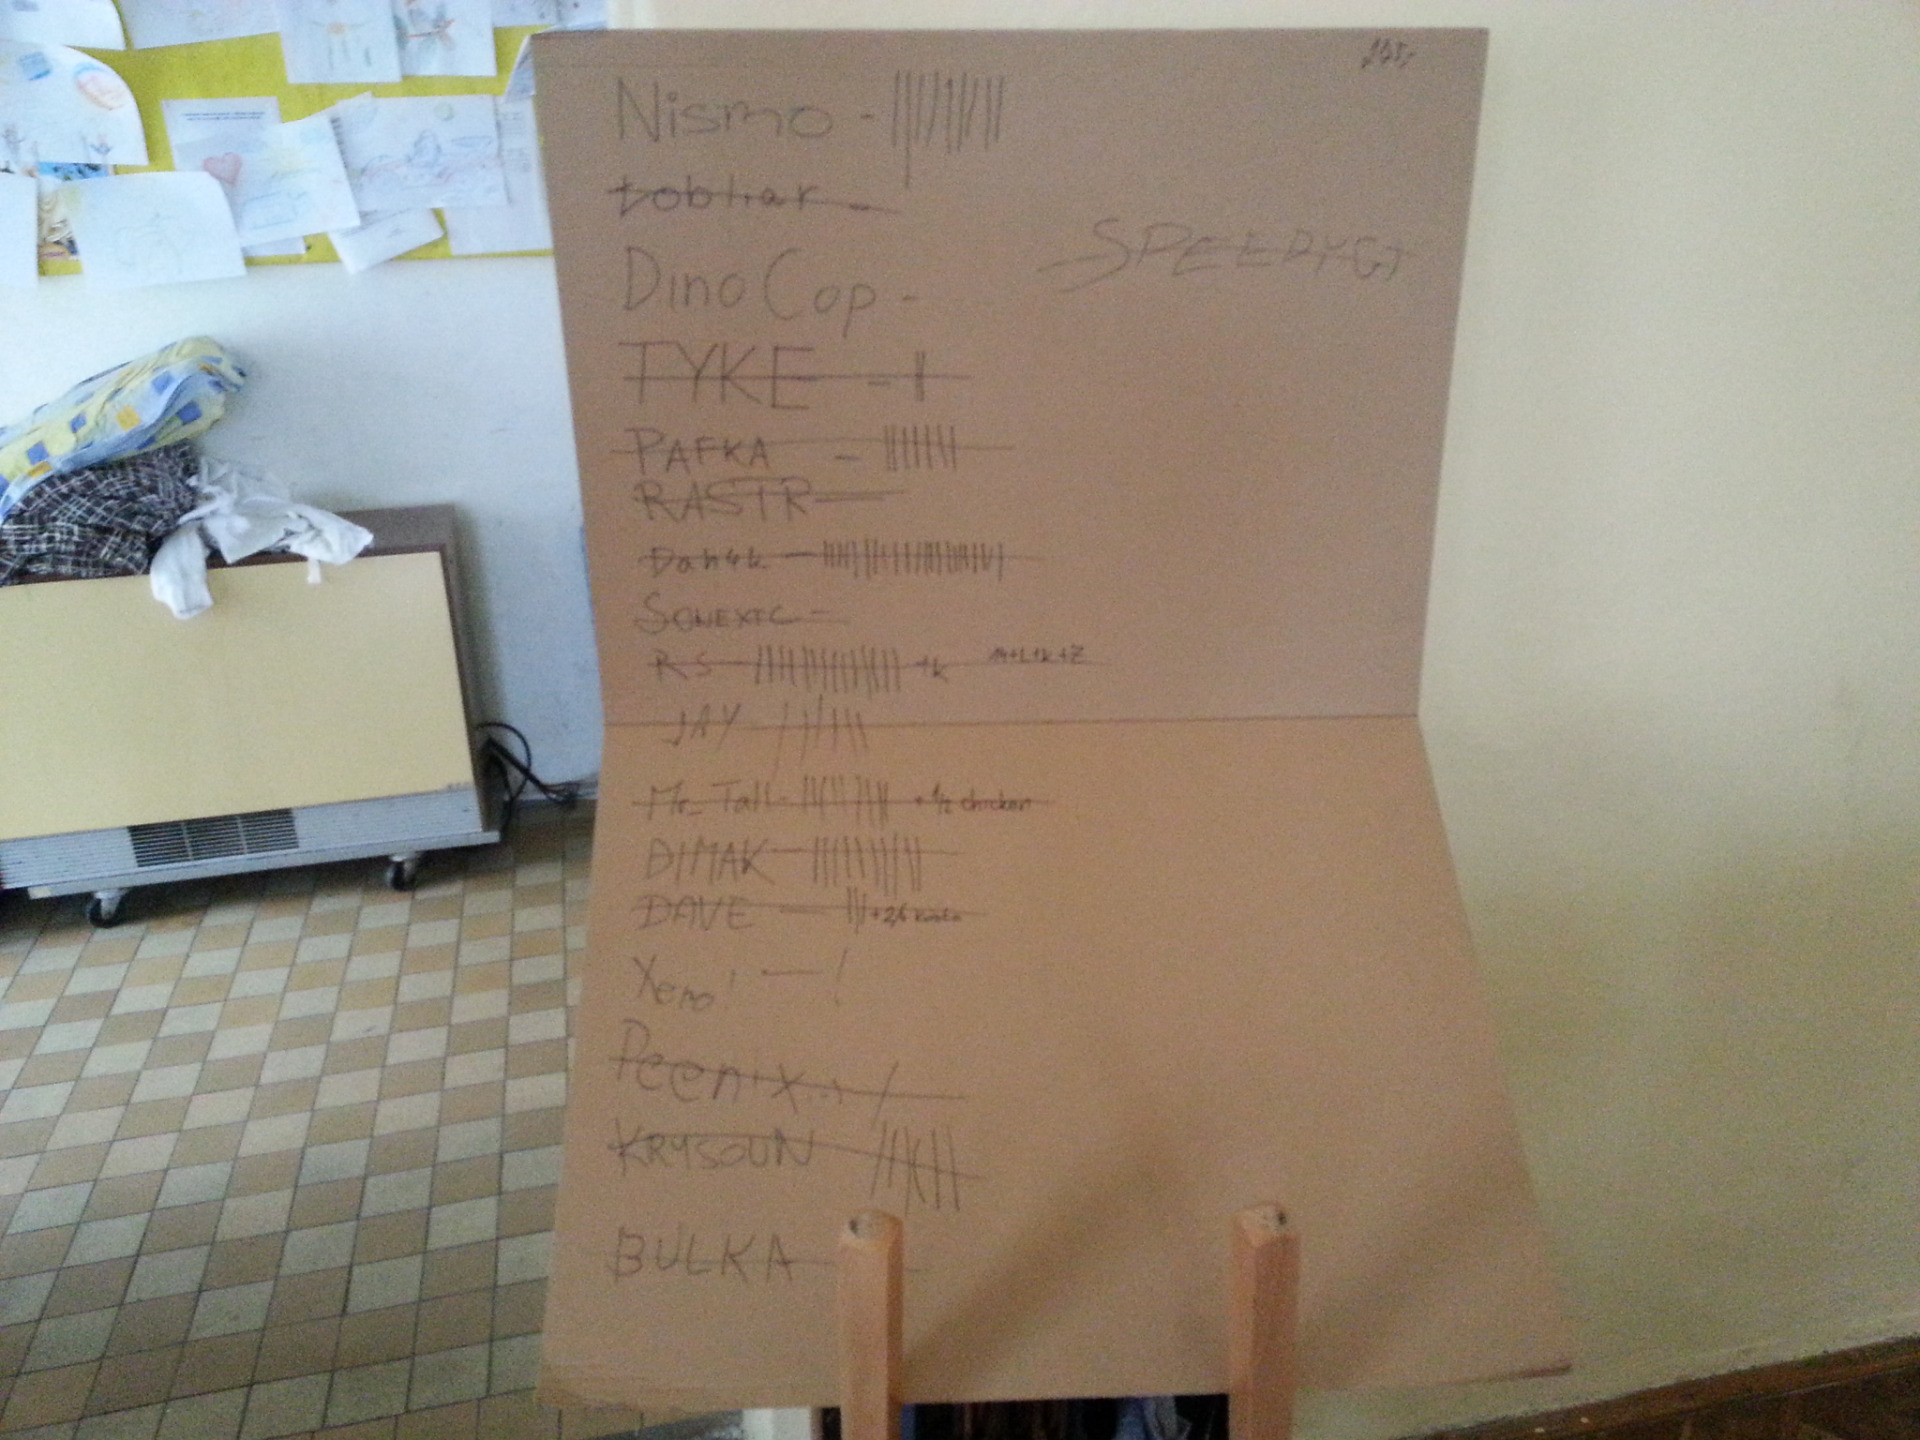 Nismo -
tobliar -
SPEEDYGJ
Dino Cop -
TYKE - ||
PAFKA -
RASTR -
Dan4k -
SQUEXTC -
RS - +k M+L+k+Z
JAY -
Mr. Tall - + 1/2 chicken
DIMAK -
DAVE - +2,5
Xeno! - !
Peenix - /
KRYSOUN
BULKA